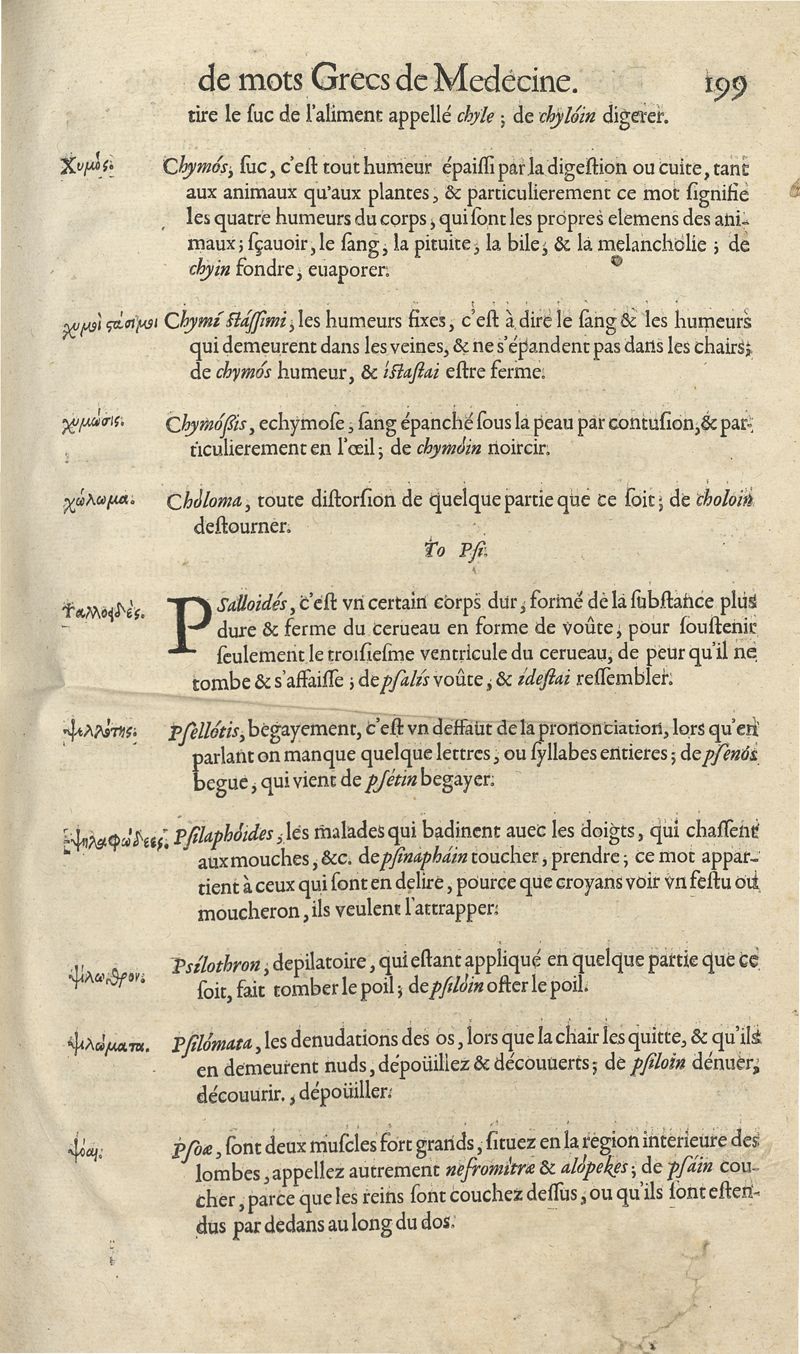 de mots Grecs de Medecine. 199
tire le ſuc de l'aliment appellé chyle ; de chylóin digerer.
Χυμός. Chymós, ſuc, c'eſt tout humeur épaiſſi par la digeſtion ou cuite, tant
aux animaux qu'aux plantes, & particulierement ce mot ſignifie
les quatre humeurs du corps, qui ſont les propres elemens des ani-
maux; ſçauoir, le ſang, la pituite, la bile, & la melancholie ; de
chyin fondre, euaporer.
χυμοὶ ϛάσιμοι Chymí stáſſimi, les humeurs fixes, c'eſt à dire le ſang & les humeurs
qui demeurent dans les veines, & ne s'épandent pas dans les chairs;
de chymós humeur, & ístaſtai eſtre ferme.
χυμώσις. Chymóßis, echymoſe, ſang épanché ſous la peau par contuſion, & par-
ticulierement en l'œil; de chymóin noircir.
χώλωμα. Chóloma, toute diſtorſion de quelque partie que ce ſoit; de choloin
deſtourner.
To Pſi.
Ψαλλοφδές. PSalloidés, c'eſt vn certain corps dur, formé de la ſubſtance plus
dure & ferme du cerueau en forme de voûte, pour ſouſtenir
ſeulement le troiſieſme ventricule du cerueau, de peur qu'il ne
tombe & s'affaiſſe ; de pſalís voûte, & ídeſtai reſſembler.
Ψελλότης. Pſellótis, begayement, c'eſt vn deffaut de la prononciation, lors qu'en
parlant on manque quelque lettres, ou ſyllabes entieres ; de pſenós
begue, qui vient de pſétin begayer.
Ψηλαφώδεες. Pſilaphóides, les malades qui badinent auec les doigts, qui chaſſent
aux mouches, &c. de pſinapháin toucher, prendre ; ce mot appar-
tient à ceux qui ſont en delire, pource que croyans voir vn feſtu ou
moucheron, ils veulent l'attrapper.
ψίλωθρον. Psílothron, depilatoire, qui eſtant appliqué en quelque partie que ce
ſoit, fait tomber le poil; de pſilóin oſter le poil.
ψιλώματα. Pſilómata, les denudations des os, lors que la chair les quitte, & qu'ils
en demeurent nuds, dépoüillez & découuerts; de pſiloin dénuer,
découurir., dépoüiller.
ψόαι. Pſoæ, ſont deux muſcles fort grands, ſituez en la region interieure des
lombes, appellez autrement nefromítræ & alópekes; de pſáin cou-
cher, parce que les reins ſont couchez deſſus, ou qu'ils ſont eſten-
dus par dedans au long du dos.